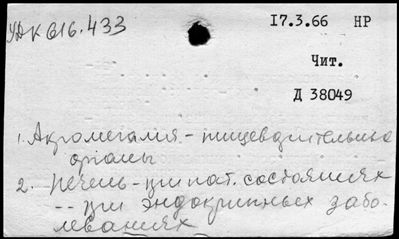 УДК 616.433
17.3.66 НР
Чит.
Д 38049
1. Акромегалия - пищеварительные
органы
2. Печень - при пат. состояниях
-- при эндокринных забо-
леваниях